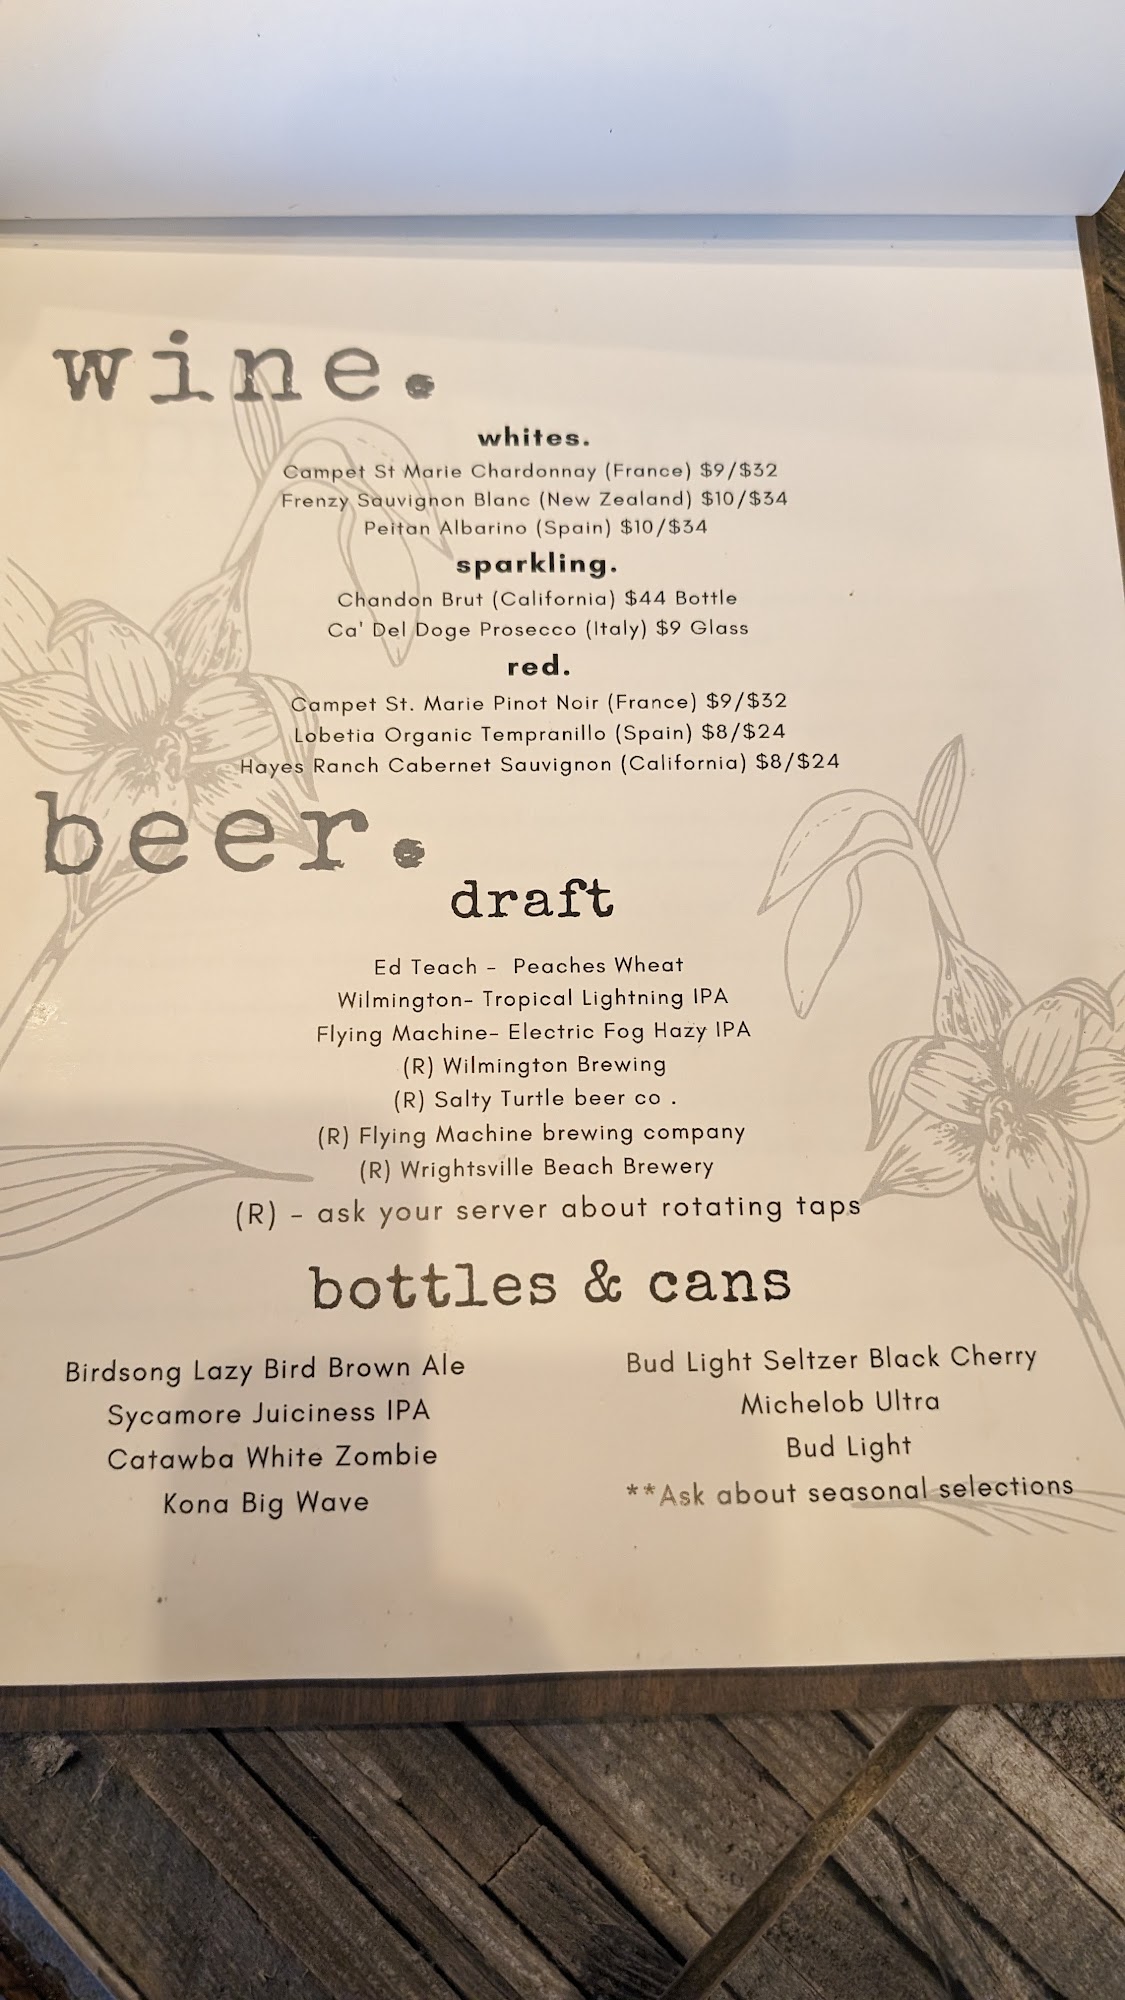 wine.
whites.
Campet St Marie Chardonnay (France) $9/$32
Frenzy Sauvignon Blanc (New Zealand) $10/$34
Peitan Albarino (Spain) $10/$34
sparkling.
Chandon Brut (California) $44 Bottle
Ca' Del Doge Prosecco (Italy) $9 Glass
red.
Campet St. Marie Pinot Noir (France) $9/$32
Lobetia Organic Tempranillo (Spain) $8/$24
Hayes Ranch Cabernet Sauvignon (California) $8/$24
beer.
draft
Ed Teach - Peaches Wheat
Wilmington- Tropical Lightning IPA
Flying Machine- Electric Fog Hazy IPA
(R) Wilmington Brewing
(R) Salty Turtle beer co .
(R) Flying Machine brewing company
(R) Wrightsville Beach Brewery
(R) - ask your server about rotating taps
bottles & cans
Birdsong Lazy Bird Brown Ale
Sycamore Juiciness IPA
Catawba White Zombie
Kona Big Wave
Bud Light Seltzer Black Cherry
Michelob Ultra
Bud Light
**Ask about seasonal selections